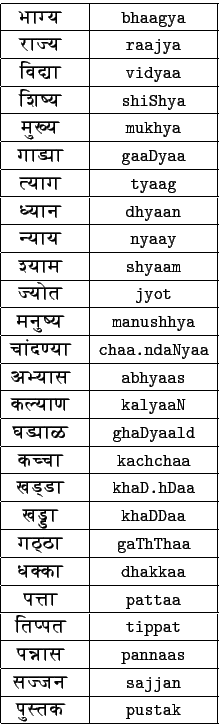 भाग्य bhaagya
राज्य raajya
विद्या vidyaa
शिष्य shiShya
मुख्य mukhya
गाड्या gaaDyaa
त्याग tyaag
ध्यान dhyaan
न्याय nyaay
श्याम shyaam
ज्योत jyot
मनुष्य manushhya
चांदण्या chaa.ndaNyaa
अभ्यास abhyaas
कल्याण kalyaaN
घड्याळ ghaDyaald
कच्चा kachchaa
खड्‌डा khaD.hDaa
खड्डा khaDDaa
गठ्ठा gaThThaa
धक्का dhakkaa
पत्ता pattaa
तिप्पत tippat
पन्नास pannaas
सज्जन sajjan
पुस्तक pustak